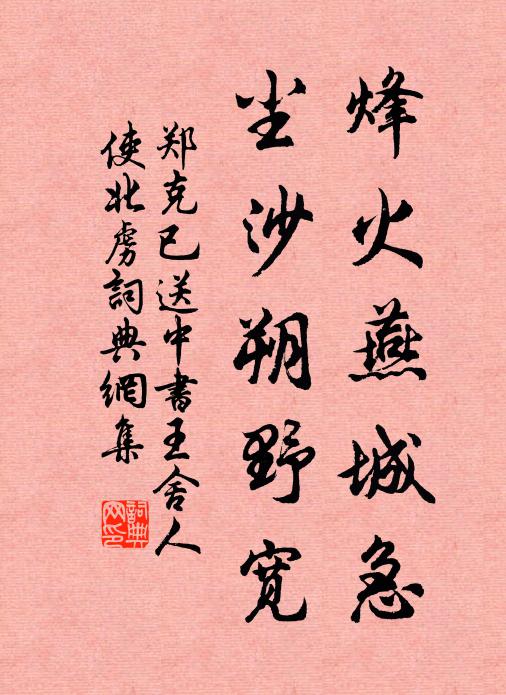 烽火燕城急
尘沙朔野宽
郑克己送中书王舍人
使北虏词典网集
词典
网印